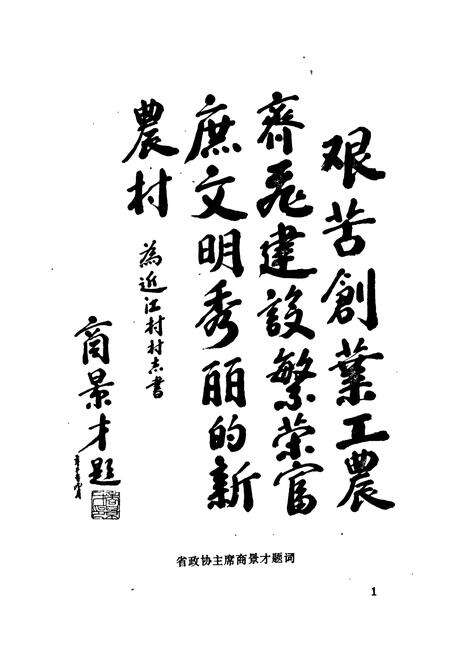 艰苦創業工農
齊飛建設繁荣富
庶文明秀丽的新
農村
為近江村村志書
商景才題
省政协主席商景才题词
1